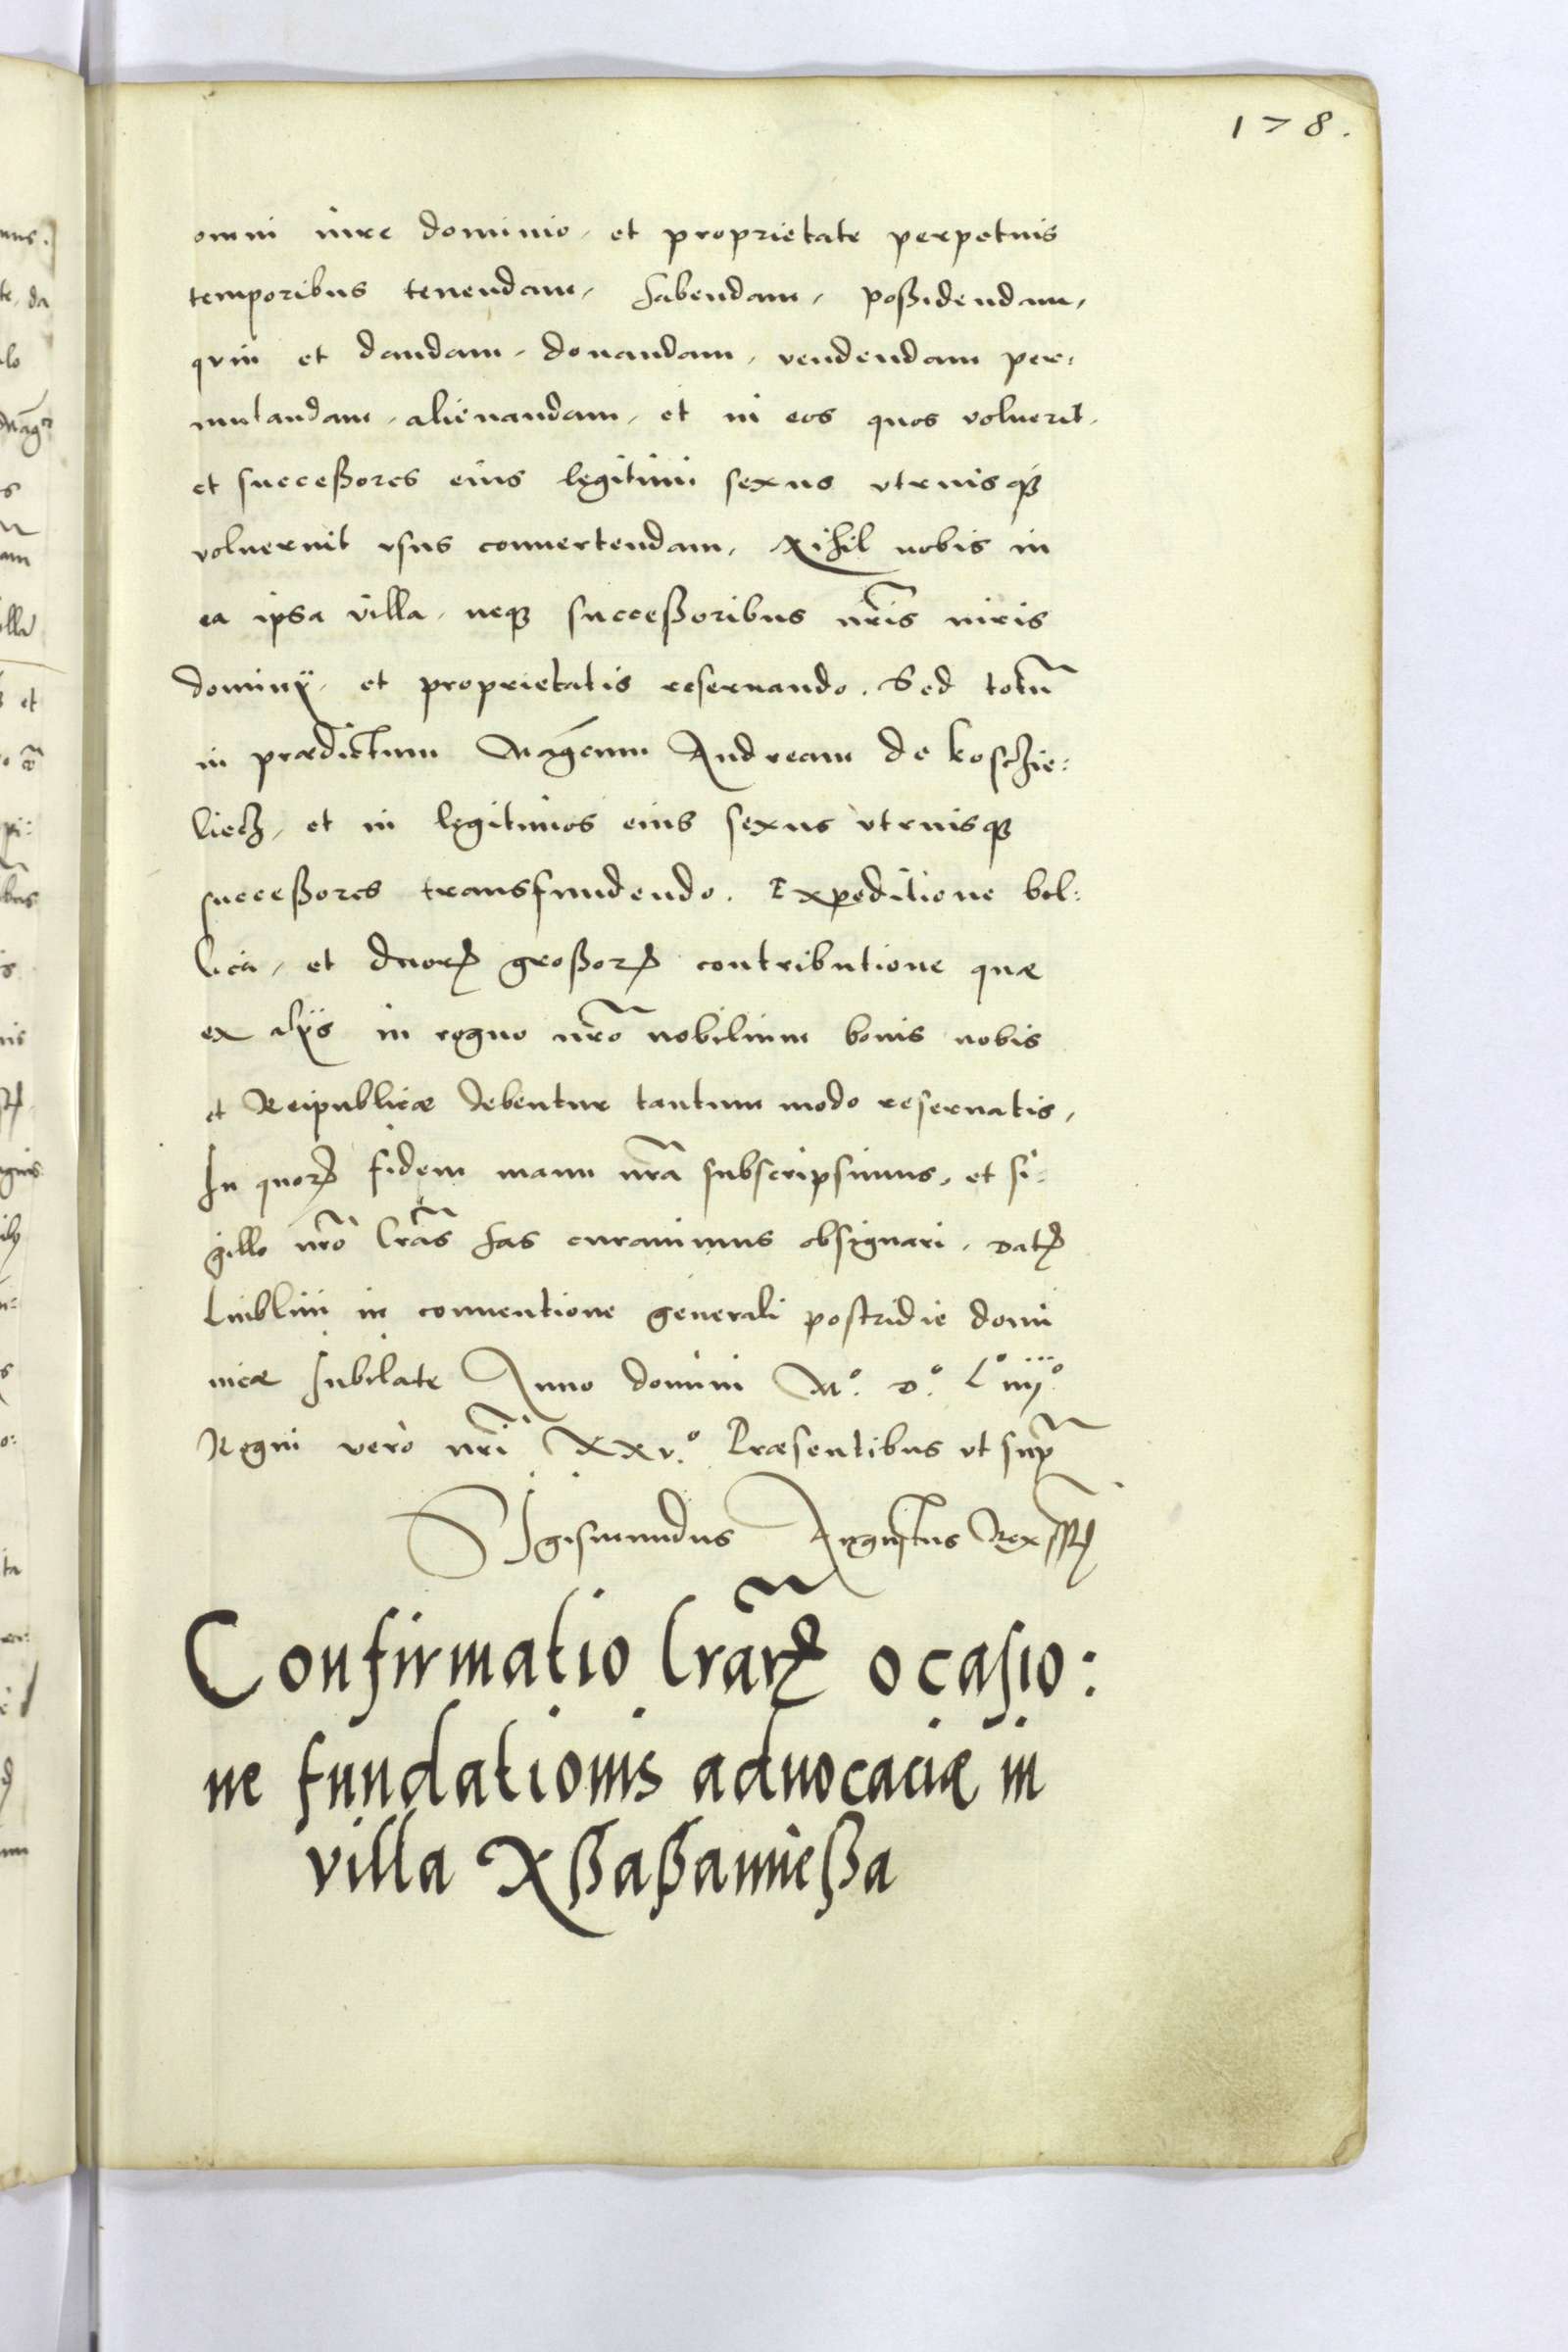 178.
omni iure dominio, et proprietate perpetuis
temporibus tenendam, habendam, possidendam,
quin et dandam, donandam, vendendam per:
mutandam, alienandam, et in eos quos voluerit,
et successores eius legitimi sexus vtriusq3
voluerint vsus conuertendam, Nihil nobis in
ea ipsa villa, neq3 successoribus nr̃is iuris
dominÿ, et proprietatis reseruando. Sed totũ
in prædictum Magcum Andream de koschie:
liecz, et in legitimos eius sexus vtriusq3
successores transfundendo. Expeditione bel:
lica, et duorꝝ grossorꝝ contributione quæ
ex alÿs in regno nr̃o nobilium bonis nobis
et Reipublicæ debentur tantum modo reseruatis,
In quorꝝ fidem manu nr̃a subscripsimus, et si:
gillo nr̃o lr̃as has curauimus obsignari. Datꝝ
Lublini in conuentione generali postridie domi
nicæ Jubilate Anno domini Mº. Dº. Lº iiijº
Regni vero nr̃i XXvº. Præsentibus vt supr̃
Sigismundus Augustus Rex sst
Confirmatio lr̃arꝝ ocasio:
ne fundationis aduocaciæ in
villa